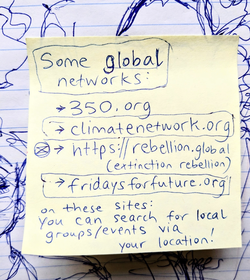 Some global
networks:
→ 350.org
→ climatenetwork.org
→ https://rebellion.global
(extinction rebellion)
→ fridaysforfuture.org
on these sites:
You can search for local
groups/events via
your location!